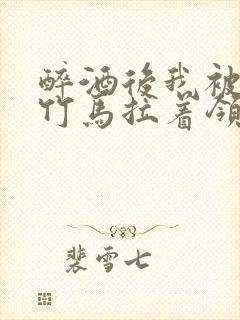 醉酒後我被
竹馬拉着領
裴雪七